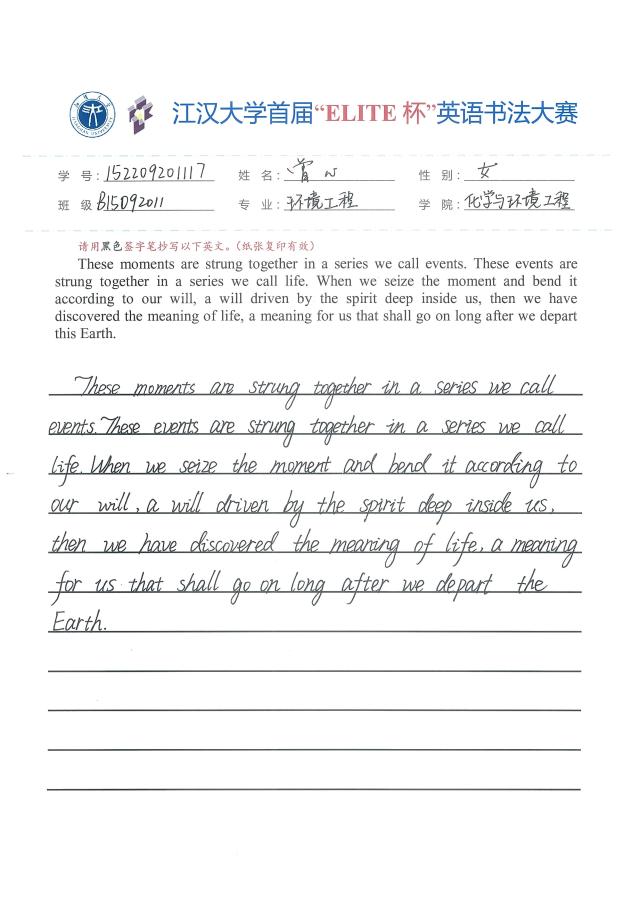 江汉大学首届“ELITE 杯”英语书法大赛
学 号: 152209201117 姓 名: 性 别: 女
班 级: B15092011 专 业: 环境工程 学 院: 化学与环境工程
请用黑色签字笔抄写以下英文。(纸张复印有效)
These moments are strung together in a series we call events. These events are
strung together in a series we call life. When we seize the moment and bend it
according to our will, a will driven by the spirit deep inside us, then we have
discovered the meaning of life, a meaning for us that shall go on long after we depart
this Earth.
These moments are strung together in a series we call
events. These events are strung together in a series we call
life. When we seize the moment and bend it according to
our will, a will driven by the spirit deep inside us,
then we have discovered the meaning of life, a meaning
for us that shall go on long after we depart the
Earth.